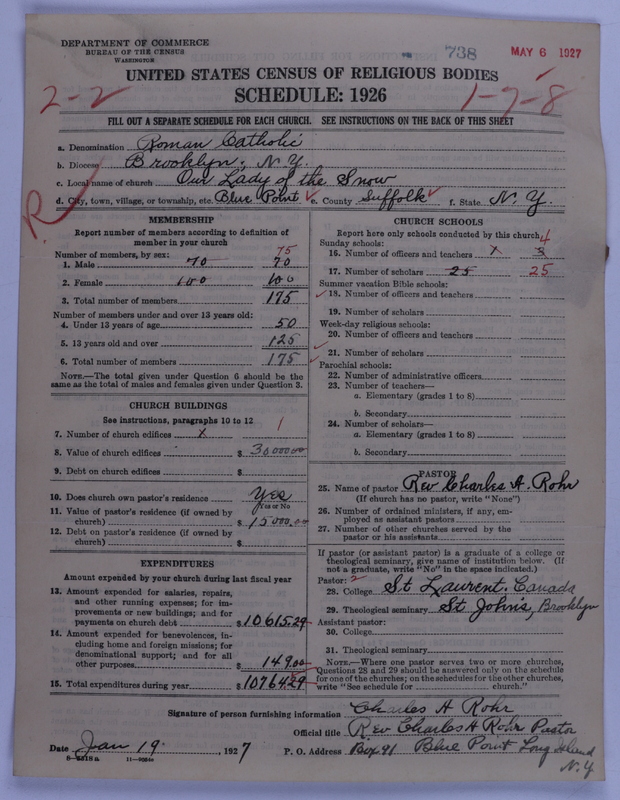 DEPARTMENT OF COMMERCE
BUREAU OF THE CENSUS
WASHINGTON
738
MAY 6 1927
UNITED STATES CENSUS OF RELIGIOUS BODIES
SCHEDULE: 1926
2-2
1-7-8
FILL OUT A SEPARATE SCHEDULE FOR EACH CHURCH. SEE INSTRUCTIONS ON THE BACK OF THIS SHEET
a. Denomination Roman Catholic
b. Diocese Brooklyn, N.Y.
c. Local name of church Our Lady of the Snow
d. City, town, village, or township, etc. Blue Point e. County Suffolk f. State N.Y.
R
MEMBERSHIP
Report number of members according to definition of
member in your church
Number of members, by sex: 75
1. Male 70 70
2. Female 100 100
3. Total number of members 175
Number of members under and over 13 years old:
4. Under 13 years of age 50
5. 13 years old and over 125
6. Total number of members 175
NOTE.—The total given under Question 6 should be the
same as the total of males and females given under Question 3.
CHURCH BUILDINGS
See instructions, paragraphs 10 to 12 1
7. Number of church edifices
8. Value of church edifices $ 30000.00
9. Debt on church edifices $
10. Does church own pastor's residence Yes
Yes or No
11. Value of pastor's residence (if owned by
church) $ 15000.00
12. Debt on pastor's residence (if owned by
church) $
EXPENDITURES
Amount expended by your church during last fiscal year
13. Amount expended for salaries, repairs,
and other running expenses; for im-
provements or new buildings; and for
payments on church debt $ 10615.29
14. Amount expended for benevolences, in-
cluding home and foreign missions; for
denominational support; and for all
other purposes $ 149.00
15. Total expenditures during year $ 10764.29
CHURCH SCHOOLS
Report here only schools conducted by this church
Sunday schools: 4
16. Number of officers and teachers
17. Number of scholars 25 25
Summer vacation Bible schools:
18. Number of officers and teachers
19. Number of scholars
Week-day religious schools:
20. Number of officers and teachers
21. Number of scholars
Parochial schools:
22. Number of administrative officers
23. Number of teachers—
a. Elementary (grades 1 to 8)
b. Secondary
24. Number of scholars—
a. Elementary (grades 1 to 8)
b. Secondary
PASTOR
25. Name of pastor Rev Charles A. Rohr
(If church has no pastor, write "None")
26. Number of ordained ministers, if any, em-
ployed as assistant pastors
27. Number of other churches served by the
pastor or his assistants
If pastor (or assistant pastor) is a graduate of a college or
theological seminary, give name of institution below. (If
not a graduate, write "No" in the space indicated.)
Pastor: 2
28. College St Laurent, Canada
29. Theological seminary St Johns, Brooklyn
Assistant pastor:
30. College
31. Theological seminary
NOTE.—Where one pastor serves two or more churches,
Questions 28 and 29 should be answered only on the schedule
for one of the churches; on the schedules for the other churches,
write "See schedule for church."
Signature of person furnishing information Charles A Rohr
Official title Rev Charles A Rohr Pastor
Date Jan 19, 1927 P. O. Address Box 91 Blue Point Long Island
N.Y